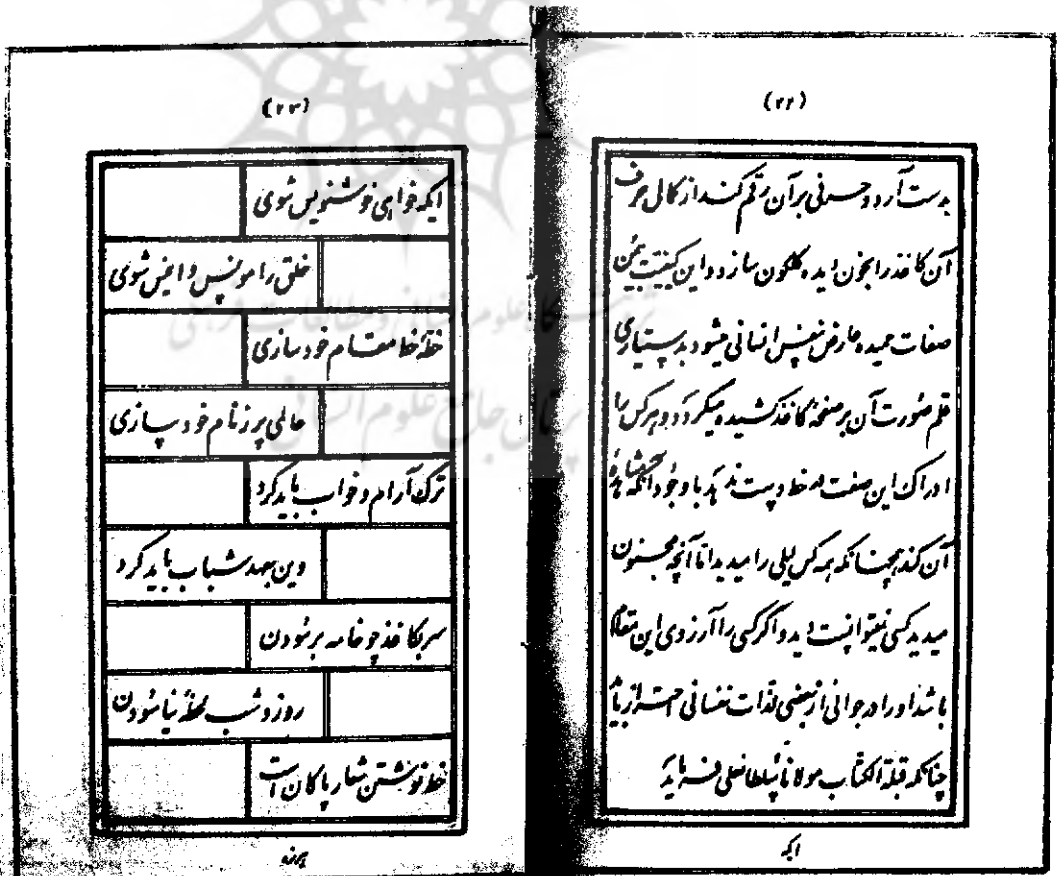 (۲۲)
بدست آرد و حرفی بر آن رقم کند از کمال حرف
آن کاغذ را بخون دیده گلگون سازد و این کیفیت بیمن
صفات حمیده عارض نفس انسانی میشود بدستیاری
قلم صورت آن بر صفحهٔ کاغذ کشیده میگردد و هرکس را
ادراک این صفت در خط دست ندهد با وجود آنکه مشاهدهٔ
آن کند همچنانکه همه کس لیلی را میدید اما آنچه مجنون
میدید کسی نمیتوانست دید و اگر کسی را آرزوی این مقام
باشد او را در جوانی از بعضی لذات نفسانی احتراز باید
چنانکه قبلة الکتاب مولانا سلطانعلی فرماید
ایکه
(۲۳)
ایکه خواهی خوشنویس شوی
خلق را مونس و انیس شوی
خطهٔ خط مقام خود سازی
عالمی پر ز نام خود سازی
ترک آرام و خواب باید کرد
وین بعهد شباب باید کرد
سر بکاغذ چو خامه بر سودن
روز و شب لحظهٔ نیاسودن
خط نوشتن شعار پاکان است
پژوهشگاه علوم انسانی و مطالعات فرهنگی
پرتال جامع علوم انسانی